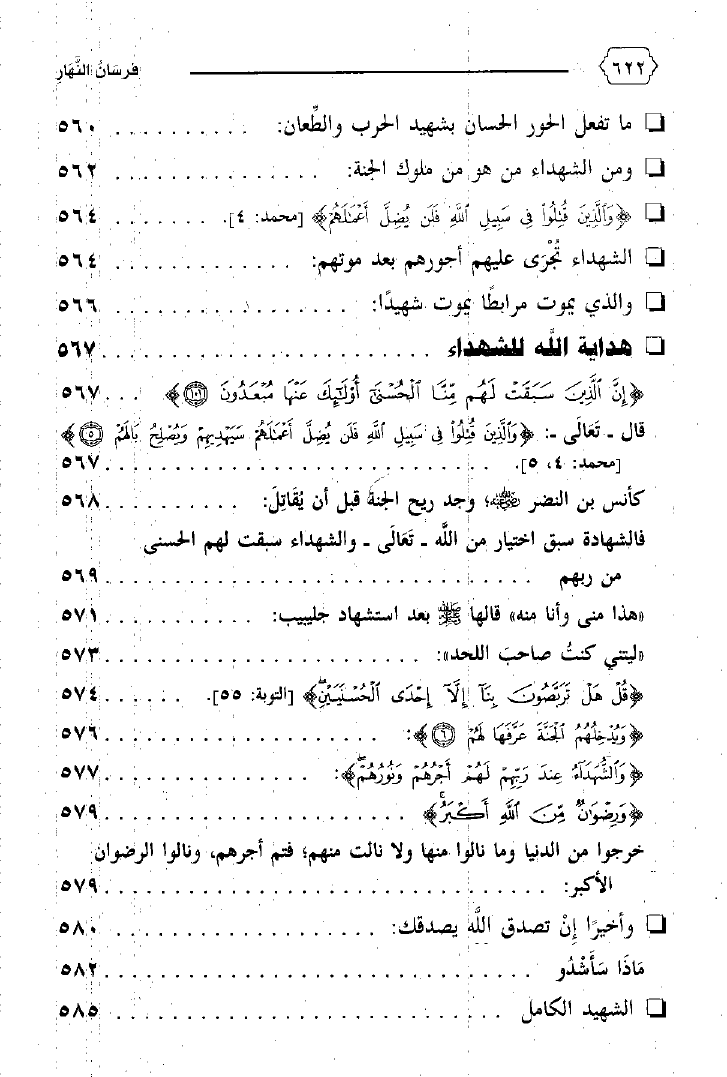 ٦٢٢ فرسَانُ النَّهَارِ
❑ ما تفعل الحور الحسان بشهيد الحرب والطِّعان: . . . . . . . . . . ٥٦٠
❑ ومن الشهداء من هو من ملوك الجنة: . . . . . . . . . . . . . . . ٥٦٢
❑ ﴿وَٱلَّذِينَ قُتِلُوا۟ فِى سَبِيلِ ٱللَّهِ فَلَن يُضِلَّ أَعْمَـٰلَهُمْ﴾ [محمد: ٤]. . . . . . . . ٥٦٤
❑ الشهداء تُجْرَى عليهم أجورهم بعد موتهم: . . . . . . . . . . . . . ٥٦٤
❑ والذي يموت مرابطًا يموت شهيدًا: . . . . . . . . . . . . . . . . ٥٦٦
❑ هداية اللَّه للشهداء . . . . . . . . . . . . . . . . . . . . . . . ٥٦٧
﴿إِنَّ ٱلَّذِينَ سَبَقَتْ لَهُم مِّنَّا ٱلْحُسْنَىٰٓ أُو۟لَـٰٓئِكَ عَنْهَا مُبْعَدُونَ ۝١٠١﴾ . . . ٥٦٧
قال ـ تَعَالَى ـ: ﴿وَٱلَّذِينَ قُتِلُوا۟ فِى سَبِيلِ ٱللَّهِ فَلَن يُضِلَّ أَعْمَـٰلَهُمْ سَيَهْدِيهِمْ وَيُصْلِحُ بَالَهُمْ ۝٥﴾
[محمد: ٤، ٥]. . . . . . . . . . . . . . . . . . . . . . . . . . . ٥٦٧
كأنس بن النضر رضي الله عنه؛ وجد ريح الجنة قبل أن يُقَاتِلَ: . . . . . . . . . . ٥٦٨
فالشهادة سبق اختيار من اللَّه ـ تَعَالَى ـ والشهداء سبقت لهم الحسنى
من ربهم . . . . . . . . . . . . . . . . . . . . . . . . . . . . . ٥٦٩
«هذا منى وأنا منه» قالها ﷺ بعد استشهاد جليبيب: . . . . . . . . . . ٥٧١
«ليتني كنتُ صاحبَ اللحد»: . . . . . . . . . . . . . . . . . . . . ٥٧٣
﴿قُلْ هَلْ تَرَبَّصُونَ بِنَآ إِلَّآ إِحْدَى ٱلْحُسْنَيَيْنِ﴾ [التوبة: ٥٥]. . . . . . . ٥٧٤
﴿وَيُدْخِلُهُمُ ٱلْجَنَّةَ عَرَّفَهَا لَهُمْ ۝٦﴾: . . . . . . . . . . . . . . . . . ٥٧٦
﴿وَٱلشُّهَدَآءُ عِندَ رَبِّهِمْ لَهُمْ أَجْرُهُمْ وَنُورُهُمْ﴾: . . . . . . . . . . . . . . ٥٧٧
﴿وَرِضْوَٰنٌ مِّنَ ٱللَّهِ أَكْبَرُ﴾ . . . . . . . . . . . . . . . . . . . . ٥٧٩
خرجوا من الدنيا وما نالوا منها ولا نالت منهم؛ فتم أجرهم، ونالوا الرضوان
الأكبر: . . . . . . . . . . . . . . . . . . . . . . . . . . . . . . ٥٧٩
❑ وأخيرًا إنْ تصدق اللَّه يصدقك: . . . . . . . . . . . . . . . . . . ٥٨٠
مَاذَا سَأَشْدُو . . . . . . . . . . . . . . . . . . . . . . . . . . . ٥٨٢
❑ الشهيد الكامل . . . . . . . . . . . . . . . . . . . . . . . . . . ٥٨٥